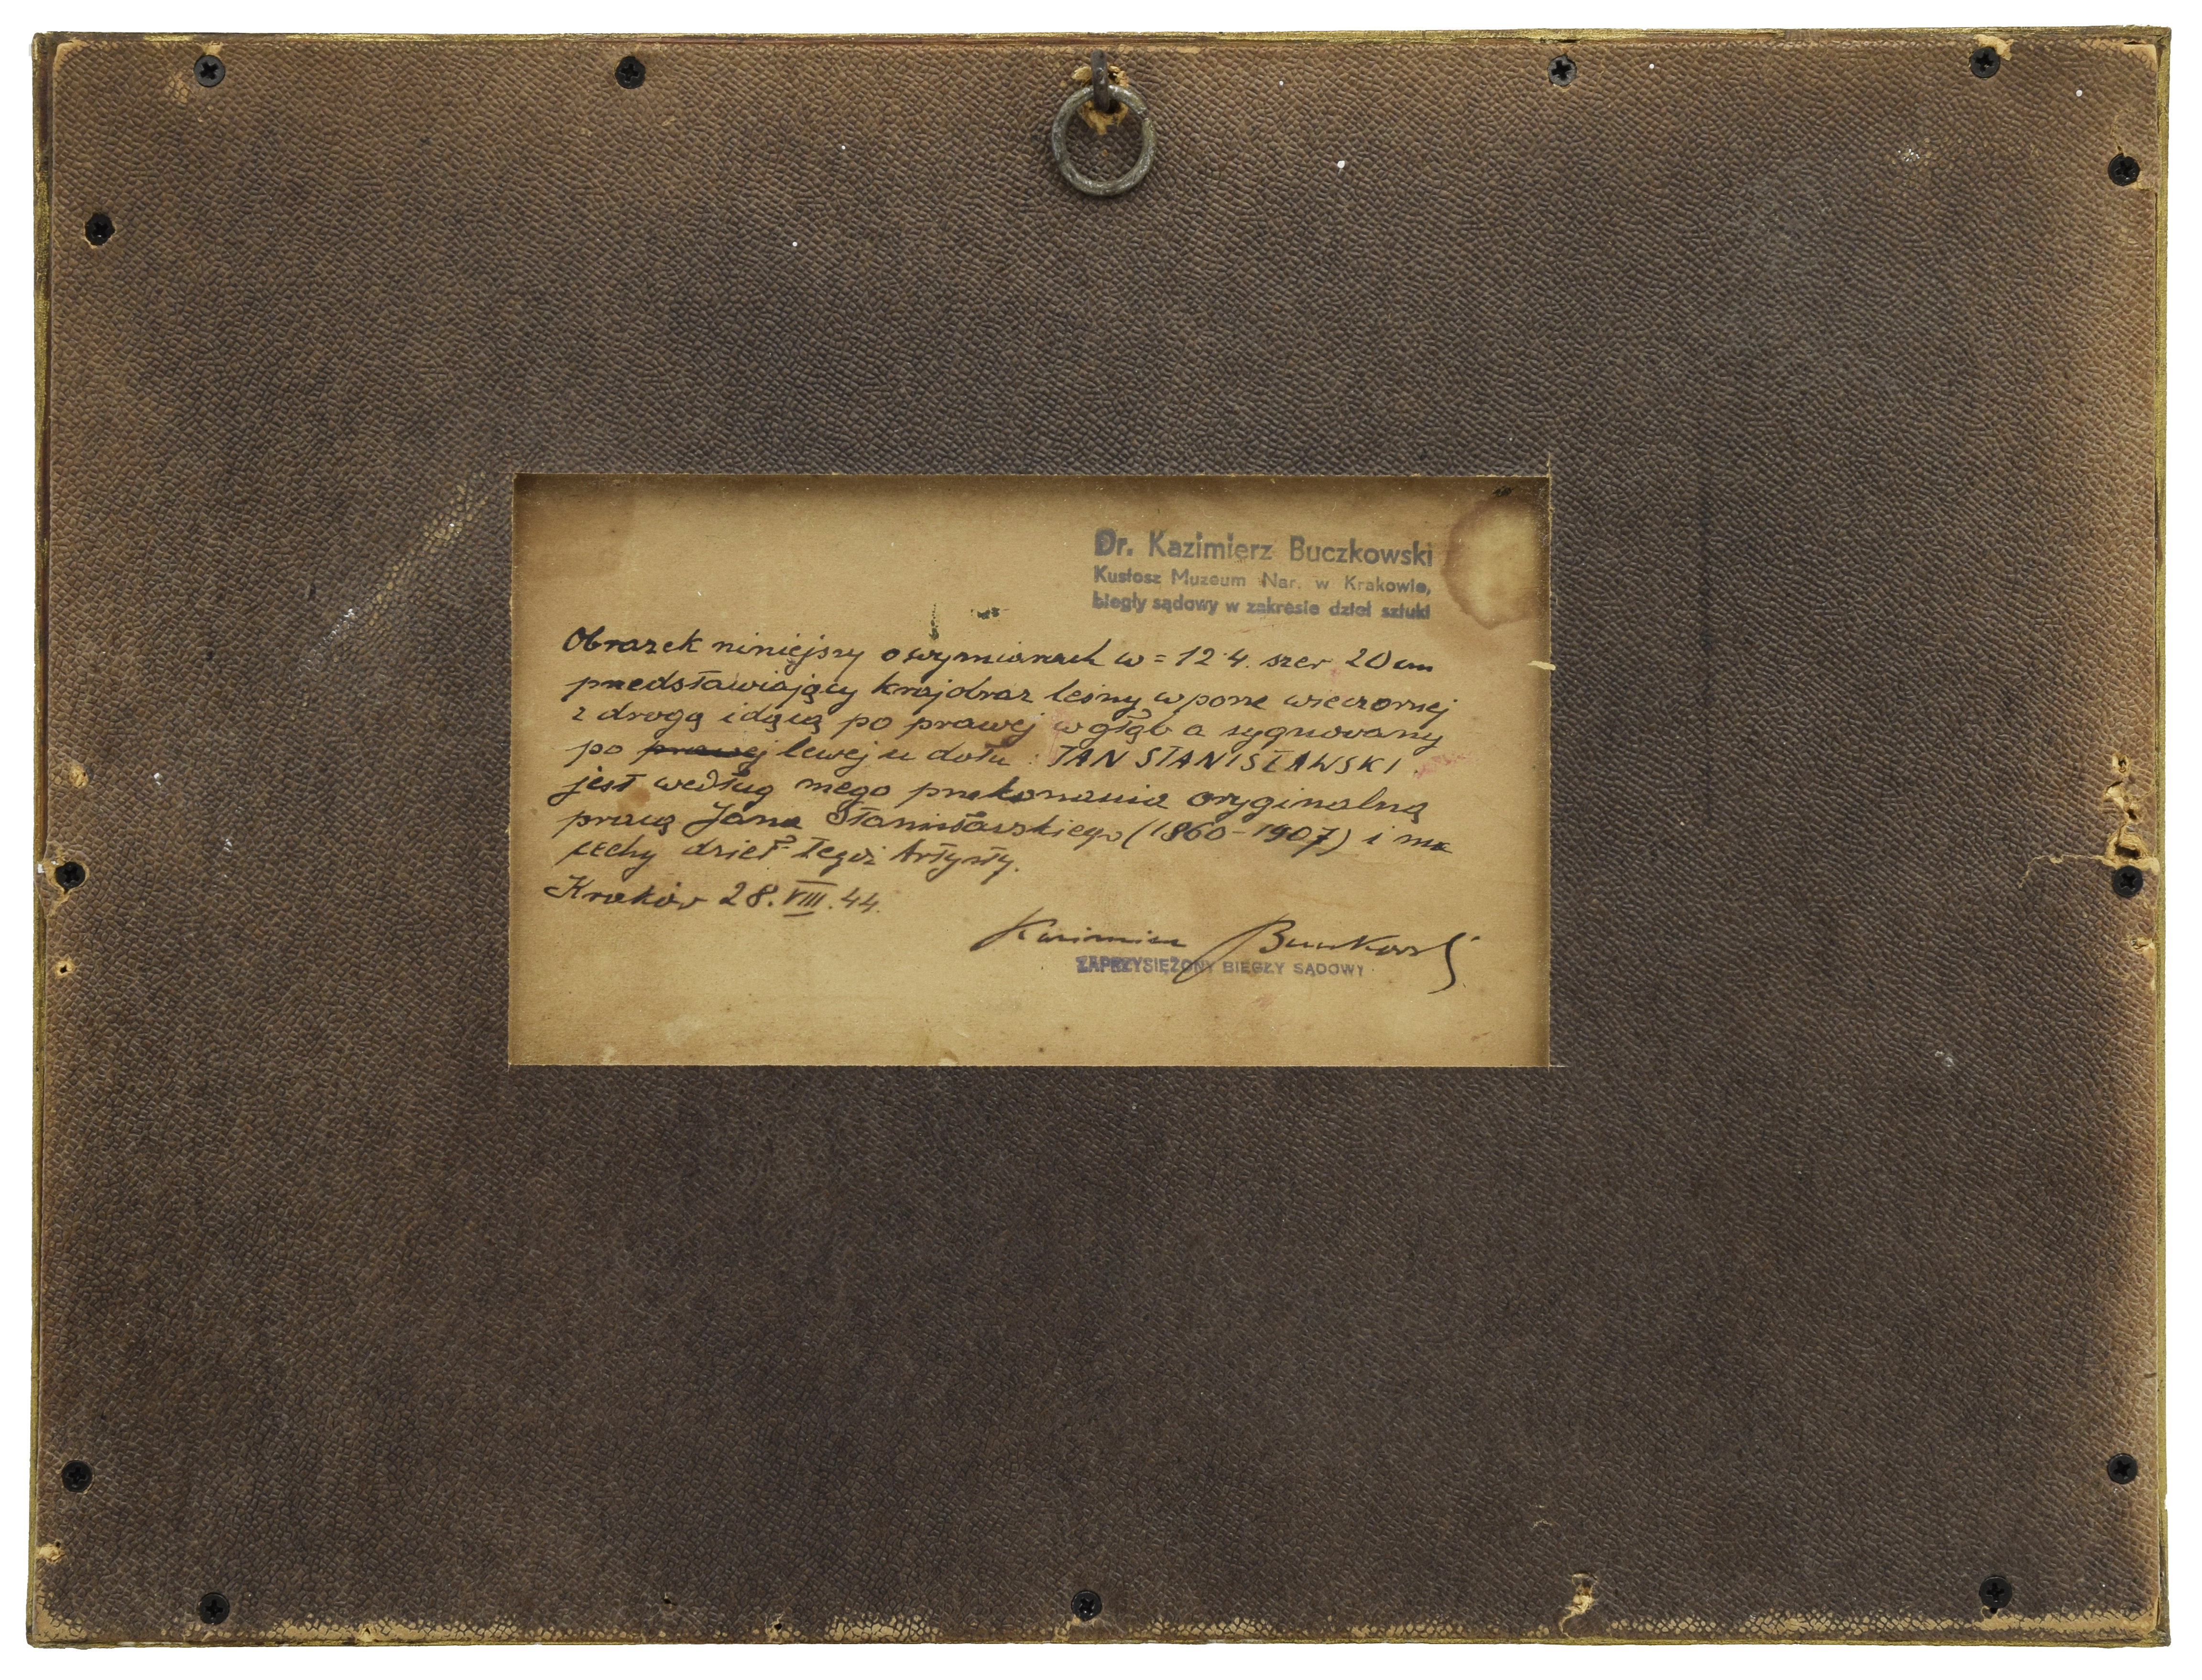 Dr. Kazimierz Buczkowski
Kustosz Muzeum Nar. w Krakowie,
biegły sądowy w zakresie dzieł sztuki
Obrazek niniejszy o wymiarach w = 12.4. szer 20 cm
przedstawiający krajobraz leśny w porze wieczornej
z drogą idącą po prawej w głąb a sygnowany
po prawej lewej u dołu : JAN STANISŁAWSKI
jest według mego przekonania oryginalną
pracą Jana Stanisławskiego (1860-1907) i ma
cechy dzieł tegoż Artysty.
Kraków 28.VIII.44.
Kazimierz Buczkowski
ZAPRZYSIĘŻONY BIEGŁY SĄDOWY